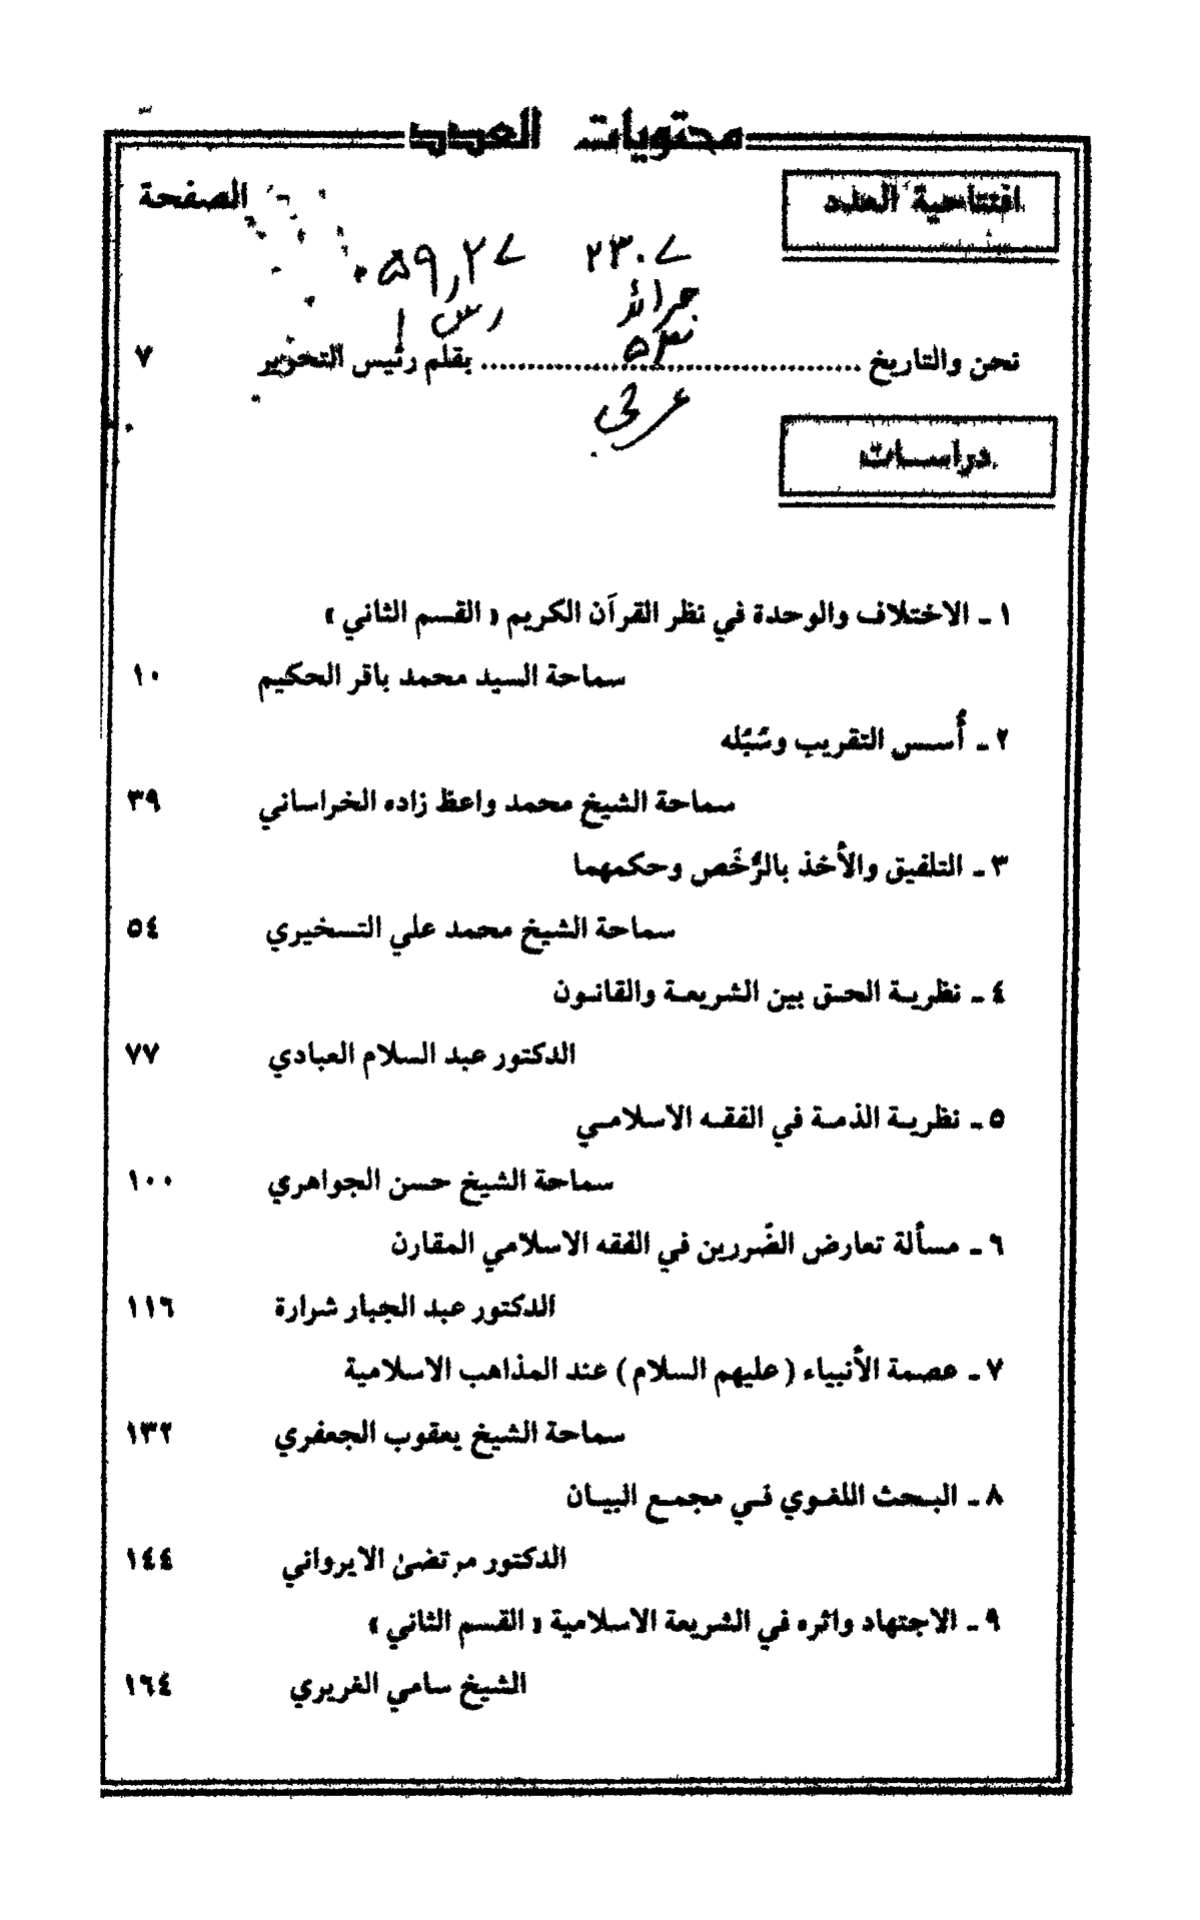 محتويات العدد
افتتاحية العدد
الصفحة
نحن والتاريخ ........................................ بقلم رئيس التحرير ٧
دراســات
١ ـ الاختلاف والوحدة في نظر القرآن الكريم « القسم الثاني »
سماحة السيد محمد باقر الحكيم ١٠
٢ ـ أُسس التقريب وسُبُله
سماحة الشيخ محمد واعظ زاده الخراساني ٣٩
٣ ـ التلفيق والأخذ بالرُّخَص وحكمهما
سماحة الشيخ محمد علي التسخيري ٥٤
٤ ـ نظريـة الحـق بين الشريعـة والقانـون
الدكتور عبد السلام العبادي ٧٧
٥ ـ نظريـة الذمـة في الفقـه الاسلامـي
سماحة الشيخ حسن الجواهري ١٠٠
٦ ـ مسألة تعارض الضّررين في الفقه الاسلامي المقارن
الدكتور عبد الجبار شرارة ١١٦
٧ ـ عصمة الأنبياء (عليهم السلام) عند المذاهب الاسلامية
سماحة الشيخ يعقوب الجعفري ١٣٢
٨ ـ البـحث اللغـوي فـي مجمـع البيـان
الدكتور مرتضىٰ الايرواني ١٤٤
٩ ـ الاجتهاد واثره في الشريعة الاسلامية « القسم الثاني »
الشيخ سامي الغريري ١٦٤